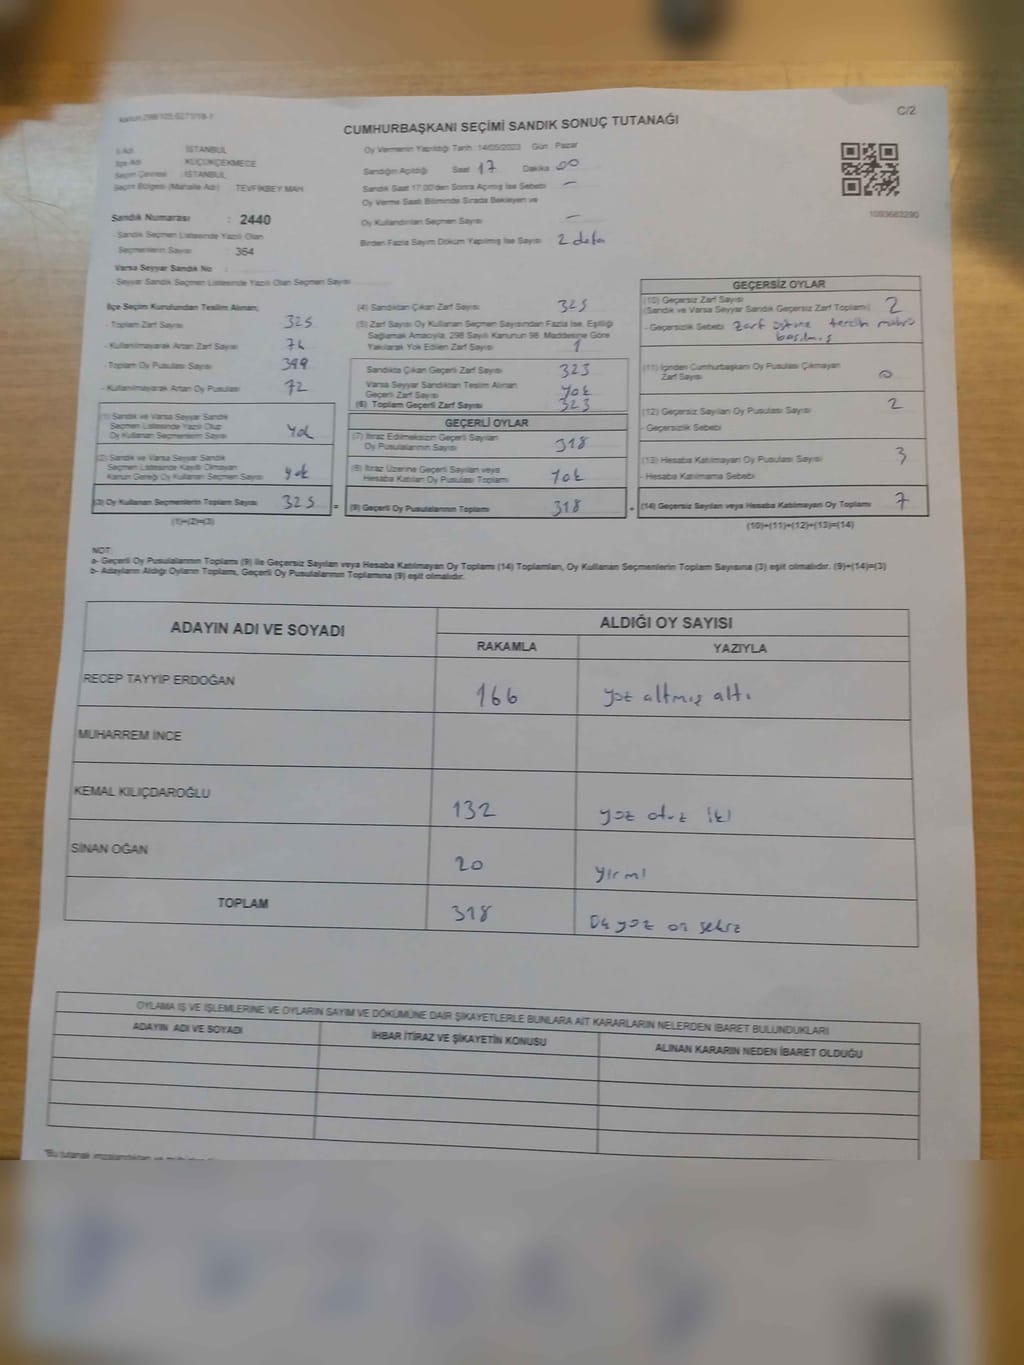 Kanun 298/105,6271/18-1
C/2
CUMHURBAŞKANI SEÇİMİ SANDIK SONUÇ TUTANAĞI
İl Adı : İSTANBUL
İlçe Adı : KÜÇÜKÇEKMECE
Seçim Çevresi : İSTANBUL
Seçim Bölgesi (Mahalle Adı) : TEVFİKBEY MAH
Sandık Numarası : 2440
Sandık Seçmen Listesinde Yazılı Olan
Seçmenlerin Sayısı : 364
Varsa Seyyar Sandık No :
Seyyar Sandık Seçmen Listesinde Yazılı Olan Seçmen Sayısı
Oy Vermenin Yapıldığı Tarih 14/05/2023 Gün Pazar
Sandığın Açıldığı Saat 17 Dakika 00
Sandık Saat 17.00'den Sonra Açılmış İse Sebebi —
Oy Verme Saati Bitiminde Sırada Bekleyen ve
Oy Kullandırılan Seçmen Sayısı —
Birden Fazla Sayım Döküm Yapılmış İse Sayısı 2 defa
1093683290
İlçe Seçim Kurulundan Teslim Alınan;
- Toplam Zarf Sayısı 325
- Kullanılmayarak Artan Zarf Sayısı
- Toplam Oy Pusulası Sayısı 399
- Kullanılmayarak Artan Oy Pusulası 72
(1) Sandık ve Varsa Seyyar Sandık
Seçmen Listesinde Yazılı Olup
Oy Kullanan Seçmenlerin Sayısı Yok
(2) Sandık ve Varsa Seyyar Sandık
Seçmen Listesinde Kayıtlı Olmayan
Kanun Gereği Oy Kullanan Seçmen Sayısı yok
(3) Oy Kullanan Seçmenlerin Toplam Sayısı 325
(1)+(2)=(3)
(4) Sandıktan Çıkan Zarf Sayısı 325
(5) Zarf Sayısı Oy Kullanan Seçmen Sayısından Fazla İse, Eşitliği
Sağlamak Amacıyla, 298 Sayılı Kanunun 98. Maddesine Göre
Yakılarak Yok Edilen Zarf Sayısı 1
Sandıkta Çıkan Geçerli Zarf Sayısı 323
Varsa Seyyar Sandıktan Teslim Alınan
Geçerli Zarf Sayısı Yok
(6) Toplam Geçerli Zarf Sayısı 323
GEÇERLİ OYLAR
(7) İtiraz Edilmeksizin Geçerli Sayılan
Oy Pusulalarının Sayısı 318
(8) İtiraz Üzerine Geçerli Sayılan veya
Hesaba Katılan Oy Pusulası Toplamı Yok
= (9) Geçerli Oy Pusulalarının Toplamı 318
GEÇERSİZ OYLAR
(10) Geçersiz Zarf Sayısı
(Sandık ve Varsa Seyyar Sandık Geçersiz Zarf Toplamı) 2
- Geçersizlik Sebebi zarf üstüne tercih mührü
basılmış
(11) İçinden Cumhurbaşkanı Oy Pusulası Çıkmayan
Zarf Sayısı 0
(12) Geçersiz Sayılan Oy Pusulası Sayısı 2
- Geçersizlik Sebebi
(13) Hesaba Katılmayan Oy Pusulası Sayısı 3
- Hesaba Katılmama Sebebi
+ (14) Geçersiz Sayılan veya Hesaba Katılmayan Oy Toplamı 7
(10)+(11)+(12)+(13)=(14)
NOT:
a- Geçerli Oy Pusulalarının Toplamı (9) ile Geçersiz Sayılan veya Hesaba Katılmayan Oy Toplamı (14) Toplamları, Oy Kullanan Seçmenlerin Toplam Sayısına (3) eşit olmalıdır. (9)+(14)=(3)
b- Adayların Aldığı Oyların Toplamı, Geçerli Oy Pusulalarının Toplamına (9) eşit olmalıdır.
ADAYIN ADI VE SOYADI
ALDIĞI OY SAYISI
RAKAMLA YAZIYLA
RECEP TAYYİP ERDOĞAN 166 yüz altmış altı
MUHARREM İNCE
KEMAL KILIÇDAROĞLU 132 yüz otuz iki
SİNAN OĞAN 20 yirmi
TOPLAM 318 Üç yüz on sekiz
OYLAMA İŞ VE İŞLEMLERİNE VE OYLARIN SAYIM VE DÖKÜMÜNE DAİR ŞİKAYETLERLE BUNLARA AİT KARARLARIN NELERDEN İBARET BULUNDUKLARI
ADAYIN ADI VE SOYADI İHBAR İTİRAZ VE ŞİKAYETİN KONUSU ALINAN KARARIN NEDEN İBARET OLDUĞU
"Bu tutanak imzalandıktan ve